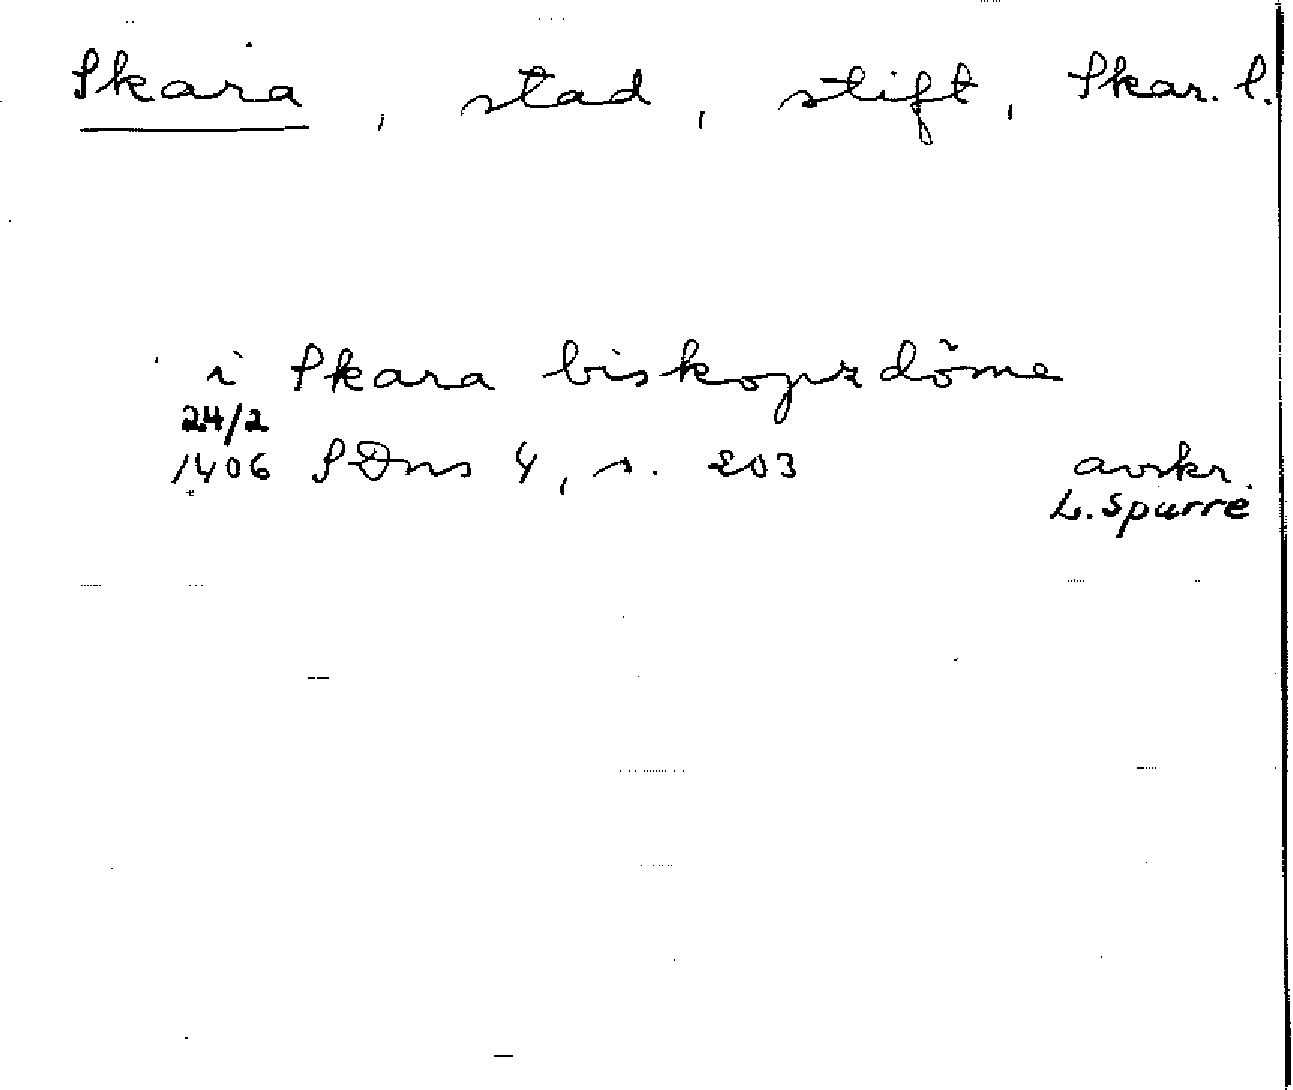 Skara, stad, stift, Skar. l.
i Skara biskopzdöme
24/2
1406 SDns 4, s. 203 avskr.
L. Sparre